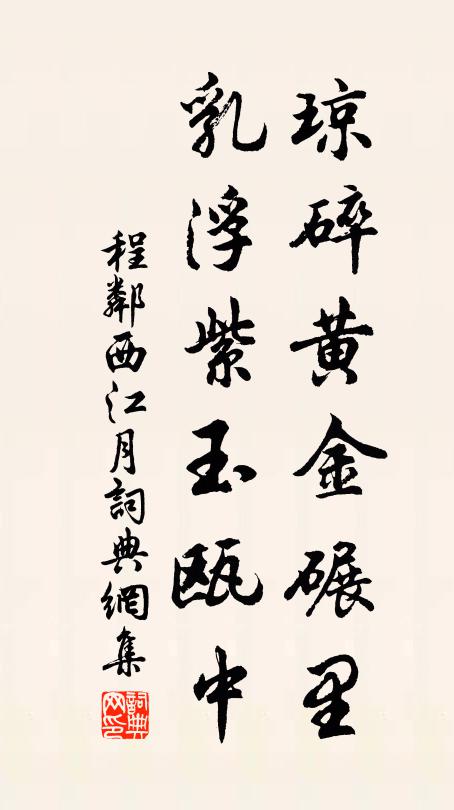 琼碎黄金碾里
乳浮紫玉瓯中
程鄰西江月詞典網集
詞典网印